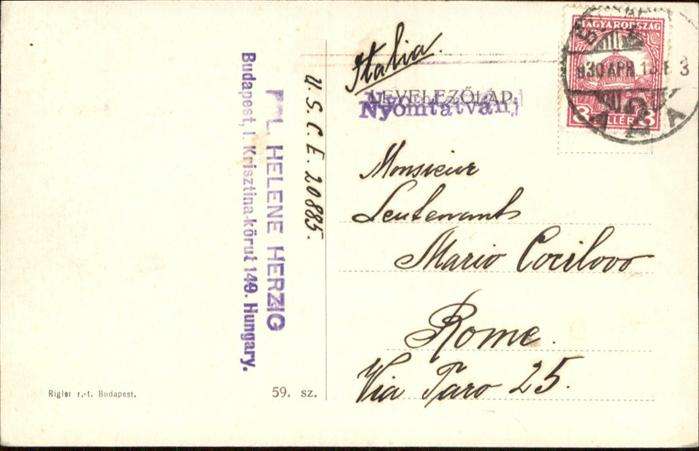 Italia.
LEVELEZŐLAP.
Nyomtatvány
MAGYARORSZÁG
930 APR. 13. E 3
8 FILLÉR 8
Monsieur
Leutenant
Mario Cocilovo
Rome.
Via Taro 25.
U.S.C.E. 20885.
HELENE HERZIG
Budapest, I. Krisztina-körut 149. Hungary.
Rigler r.-t. Budapest.
59. sz.